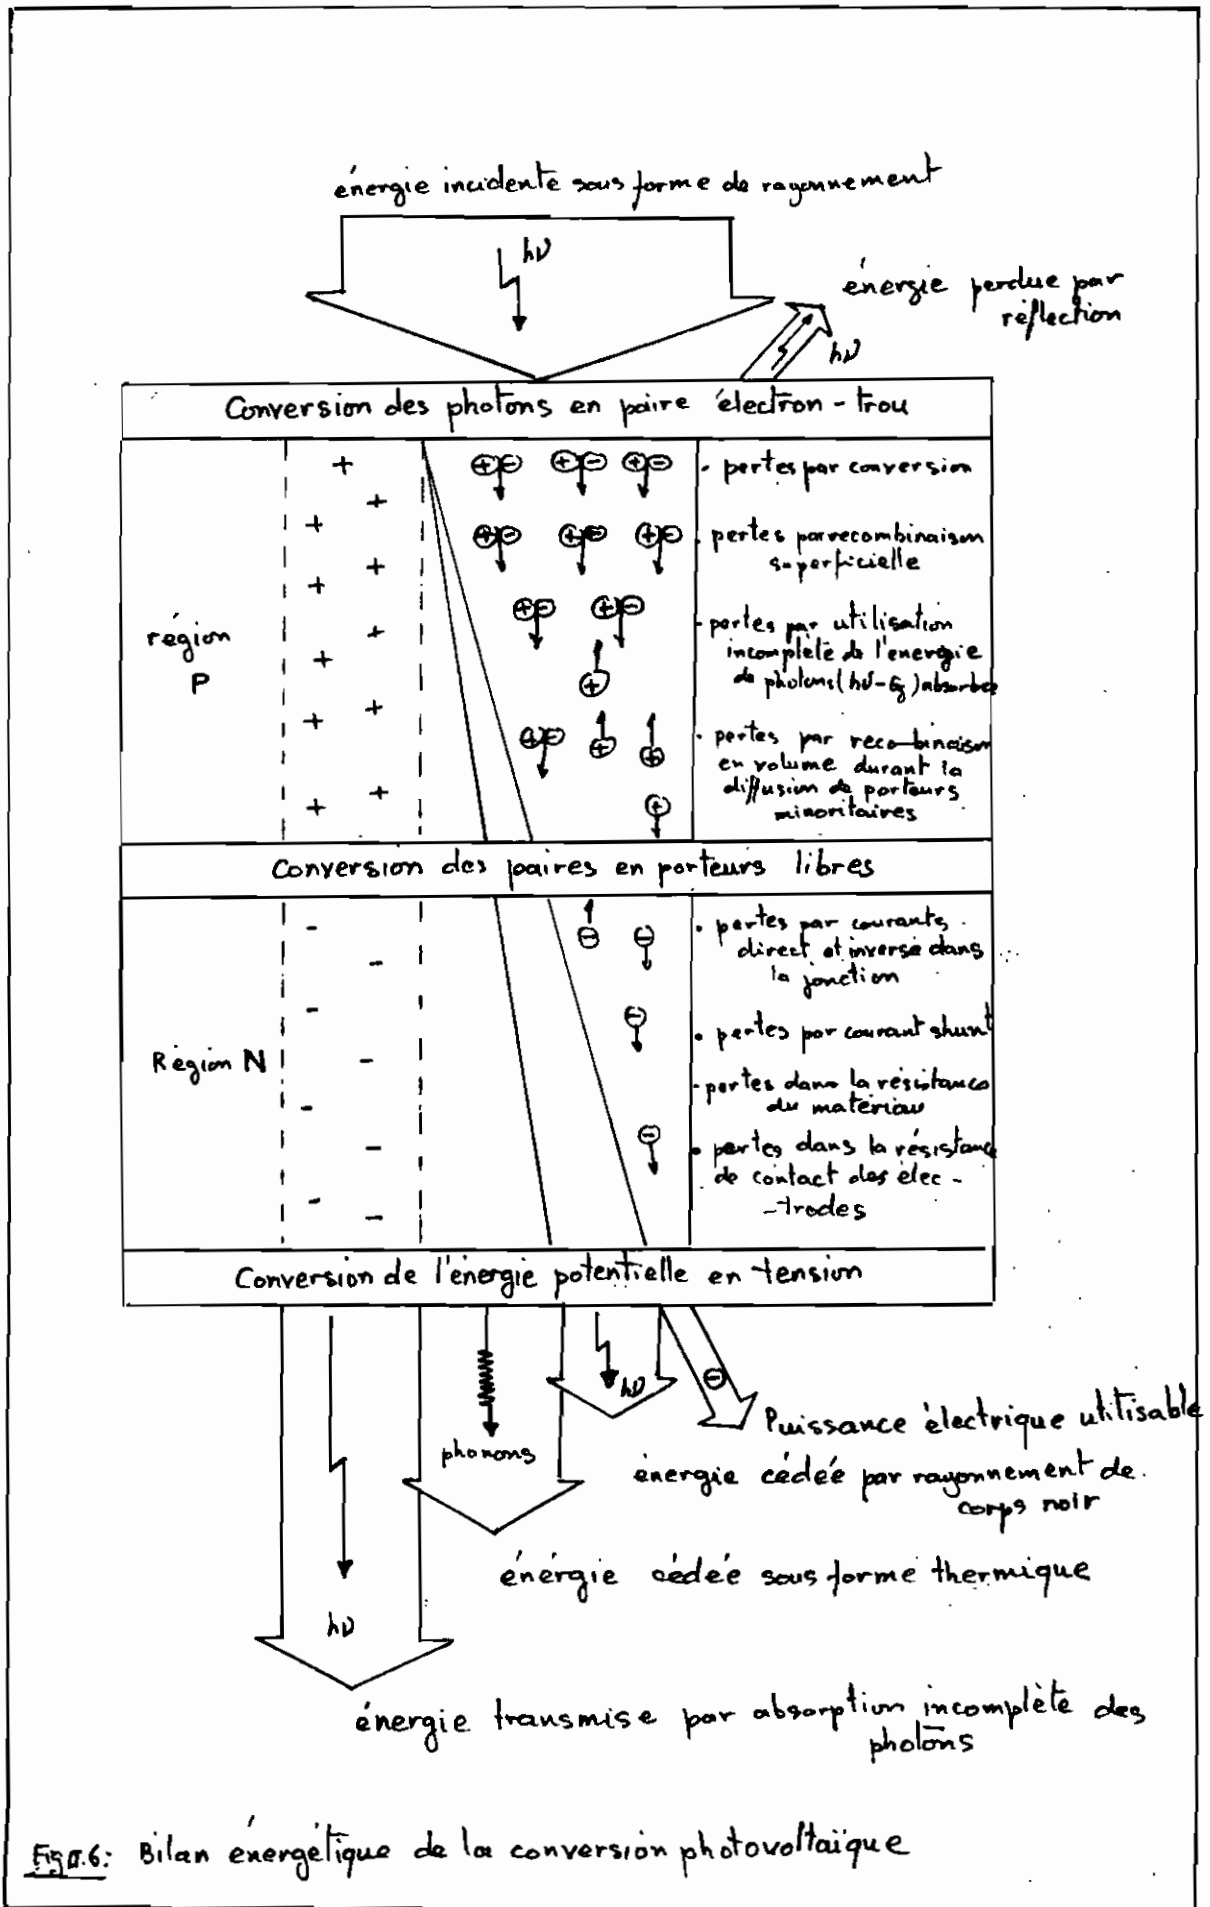 énergie incidente sous forme de rayonnement
hν
énergie perdue par
réflection
hν
Conversion des photons en paire électron-trou
région
P
• pertes par conversion
• pertes par recombinaison
superficielle
• pertes par utilisation
incomplète de l'énergie
de photons (hν-Eg) absorbés
• pertes par recombinaison
en volume durant la
diffusion de porteurs
minoritaires
Conversion des paires en porteurs libres
Région N
• pertes par courants
direct et inverse dans
la jonction
• pertes par courant shunt
• pertes dans la résistance
du matériau
• pertes dans la résistance
de contact des élec-
-trodes
Conversion de l'énergie potentielle en tension
hν
phonons
Puissance électrique utilisable
énergie cédée par rayonnement de
corps noir
énérgie cédée sous forme thermique
hν
énergie transmise par absorption incomplète des
photons
Bilan énergétique de la conversion photovoltaïque